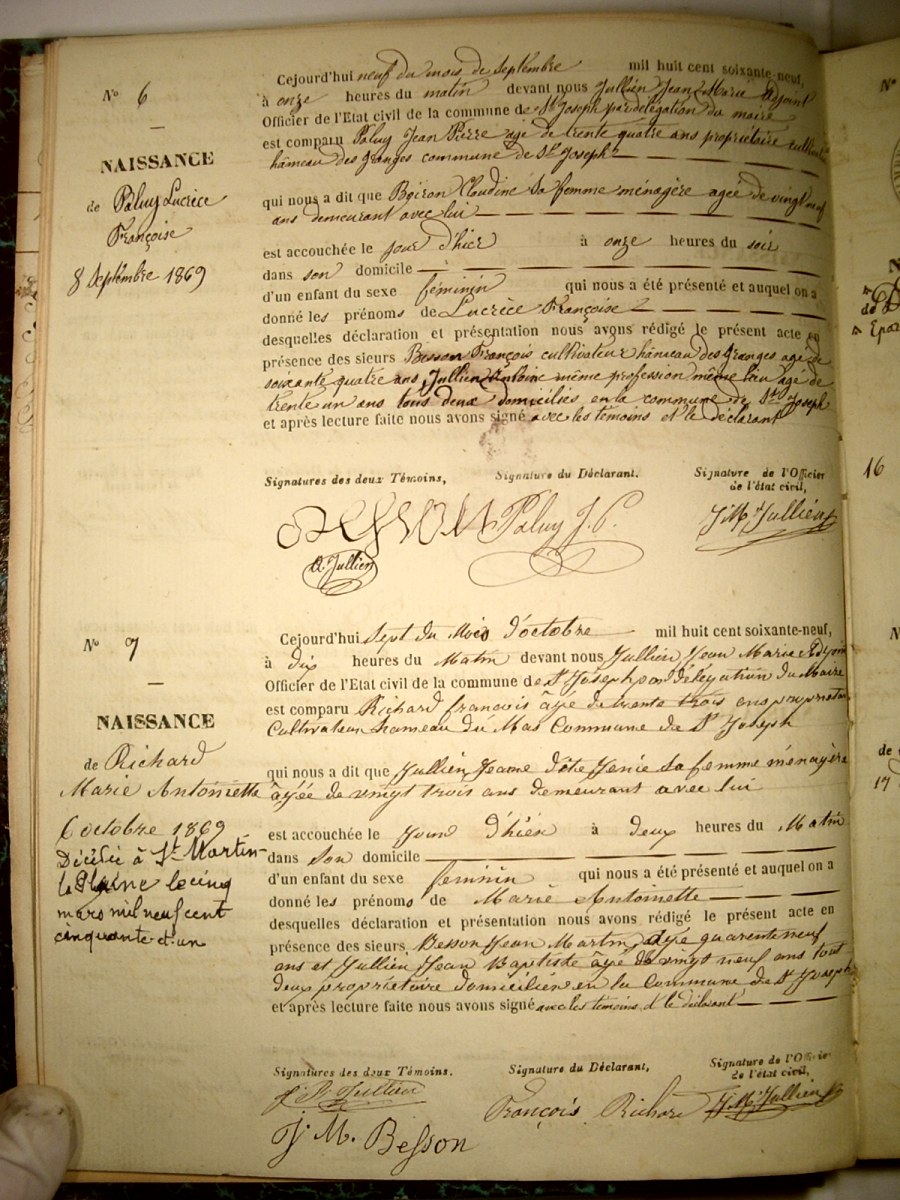 N° 6
—
NAISSANCE
de Paluy Lucrèce
Françoise
8 Septembre 1869
Cejourd'hui neuf du mois de Septembre mil huit cent soixante-neuf,
à onze heures du matin devant nous Jullien Jean Marie Adjoint
Officier de l'Etat civil de la commune de St Joseph par délégation du maire
est comparu Paluy Jean Pierre agé de trente quatre ans propriétaire
hâmeau des Granges commune de St Joseph
qui nous a dit que Boiron Claudine sa femme ménagère agée de vingt neuf
ans demeurant avec lui
est accouchée le jour d'hier à onze heures du soir
dans son domicile
d'un enfant du sexe féminin qui nous a été présenté et auquel on a
donné les prénoms de Lucrèce Françoise
desquelles déclaration et présentation nous avons rédigé le présent acte en
présence des sieurs Besson François cultivateur hâmeau des Granges agé de
soixante quatre ans, Jullien Antoine même profession même lieu agé de
trente un ans tous deux domiciliés en la commune de St Joseph
et après lecture faite nous avons signé avec les témoins et le déclarant
Signatures des deux Témoins, Signature du Déclarant. Signature de l'Officier
de l'état civil,
Paluy J. P. J M Jullien
A. Jullien
N° 7
—
NAISSANCE
de Richard
Marie Antoinette
6 octobre 1869
Décédée à St Martin-
la Plaine le cinq
mars mil neuf cent
cinquante-et-un
Cejourd'hui Sept du Mois d'octobre mil huit cent soixante-neuf,
à dix heures du Matin devant nous Jullien Jean Marie Adjoin
Officier de l'Etat civil de la commune de St Joseph par délégation du Maire
est comparu Richard francois âgé de trente trois ans propriétaire
Cultivateur hameau du Mas Commune de St Joseph
qui nous a dit que Jullien Jeanne dite Jenie sa femme ménagère
âgée de vingt trois ans demeurant avec lui
est accouchée le Jour d'hier à deux heures du Matin
dans Son domicile
d'un enfant du sexe feminin qui nous a été présenté et auquel on a
donné les prénoms de Marie Antoinette
desquelles déclaration et présentation nous avons rédigé le présent acte en
présence des sieurs Besson Jean Martin âgé quarente neuf
ans et Jullien Jean Baptiste âgé de vingt neuf ans tout
deux propriétaire domicilier en la Commune de St Joseph
et après lecture faite nous avons signé avec les témoins et le déclarant
Signatures des deux Témoins. Signature du Déclarant, Signature de l'Officier
de l'état civil,
J. B. Jullien François Richard J. M. Jullien
J. M. Besson
16
17